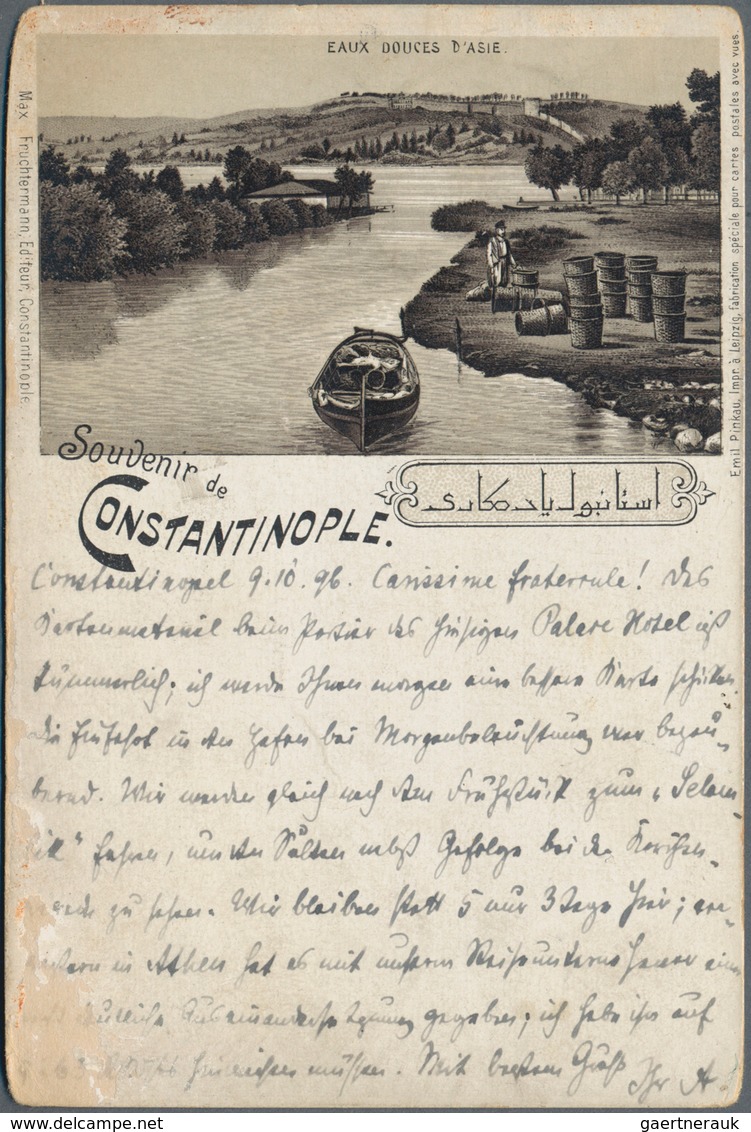 EAUX DOUCES D'ASIE.
Max Fruchtermann, Editeur, Constantinople.
Emil Pinkau, Impr. à Leipzig, fabrication spéciale pour cartes postales avec vues.
Souvenir de
CONSTANTINOPLE.
استانبول يادكارى
Constantinopel 9.10.96. Carissime fraterule! Das
Kartenmaterial beim Portier des hiesigen Palace Hotel ist
kümmerlich; ich werde Ihnen morgen eine bessere Karte schicken.
Die Einfahrt in den Hafen bei Morgenbeleuchtung war bezau-
bernd. Wir werden gleich nach dem Frühstück zum "Selam-
lik" fahren, um den Sultan nebst Gefolge bei der
zu sehen. Wir bleiben statt 5 nur 3 Tage hier;
in Athen hat es mit unserem Reiseunternehmer eine
Auseinandersetzung gegeben; ich habe ihn auf
hinweisen müssen. Mit bestem Gruß Ihr A.
gaertnerauk